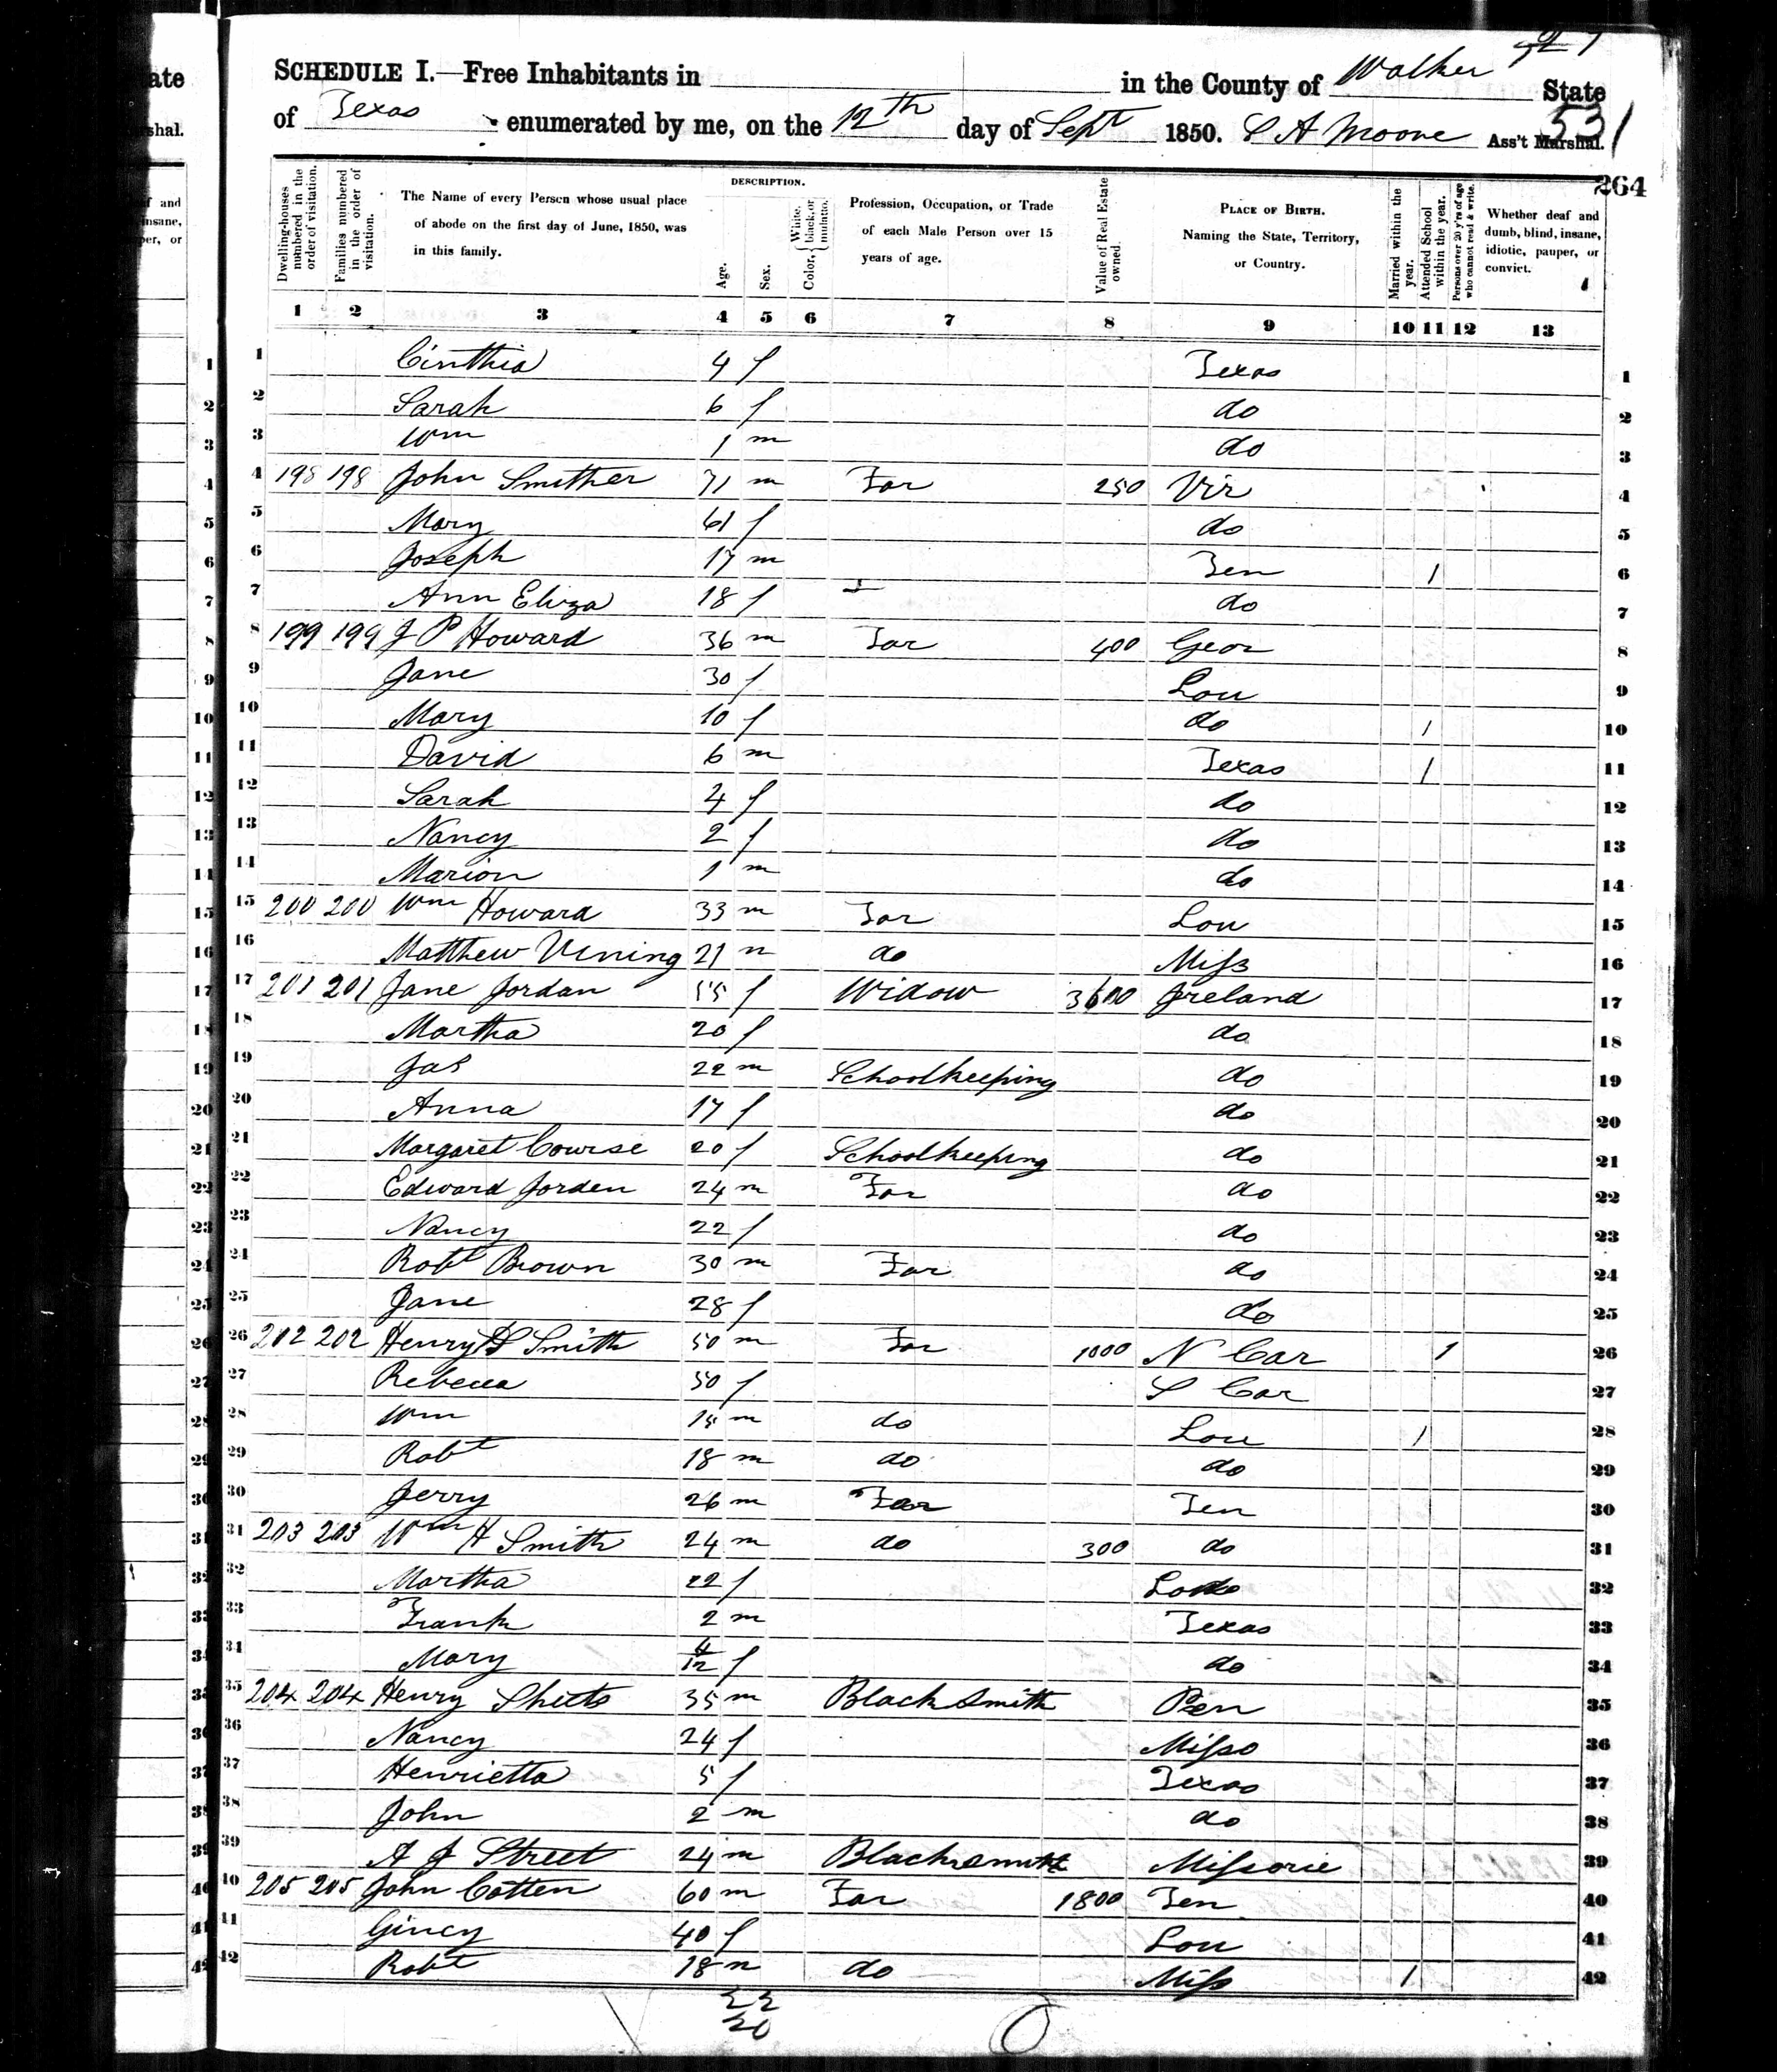 SCHEDULE I.—Free Inhabitants in in the County of Walker State
of Texas enumerated by me, on the 12th day of Sept 1850. S A Moore Ass't Marshal.
531
264
DESCRIPTION.
Dwelling-houses numbered in the order of visitation. Families numbered in the order of visitation. The Name of every Person whose usual place of abode on the first day of June, 1850, was in this family. Age. Sex. Color, White, black, or mulatto. Profession, Occupation, or Trade of each Male Person over 15 years of age. Value of Real Estate owned. PLACE OF BIRTH. Naming the State, Territory, or Country. Married within the year. Attended School within the year. Persons over 20 y'rs of age who cannot read & write. Whether deaf and dumb, blind, insane, idiotic, pauper, or convict.
1 2 3 4 5 6 7 8 9 10 11 12 13
1 Cinthia 4 f Texas 1
2 Sarah 6 f do 2
3 Wm 1 m do 3
4 198 198 John Smither 71 m Far 250 Vir 4
5 Mary 61 f do 5
6 Joseph 17 m Ten 1 6
7 Ann Eliza 18 f do 7
8 199 199 J P Howard 36 m Far 400 Geor 8
9 Jane 30 f Lou 9
10 Mary 10 f do 1 10
11 David 6 m Texas 1 11
12 Sarah 4 f do 12
13 Nancy 2 f do 13
14 Marion 1 m do 14
15 200 200 Wm Howard 33 m Far Lou 15
16 Matthew Vining 21 m do Miss 16
17 201 201 Jane Jordan 55 f Widow 3600 Ireland 17
18 Martha 20 f do 18
19 Jas 22 m Schoolkeeping do 19
20 Anna 17 f do 20
21 Margaret Course 20 f Schoolkeeping do 21
22 Edward Jorden 24 m Far do 22
23 Nancy 22 f do 23
24 Robt Brown 30 m Far do 24
25 Jane 28 f do 25
26 202 202 Henry Smith 50 m Far 1000 N Car 1 26
27 Rebecca 50 f S Car 27
28 Wm 15 m do Lou 1 28
29 Robt 18 m do do 29
30 Jerry 26 m Far Ten 30
31 203 203 Wm H Smith 24 m do 300 do 31
32 Martha 22 f 32
33 Frank 2 m Texas 33
34 Mary 4/12 f do 34
35 204 204 Henry Sheets 35 m BlackSmith Pen 35
36 Nancy 24 f Misso 36
37 Henrietta 5 f Texas 37
38 John 2 m do 38
39 A J Street 24 m Blacksmith Missorie 39
40 205 205 John Cotten 60 m Far 1800 Ten 40
41 Gincy 40 f Lou 41
42 Robt 18 m do Miss 1 42
22
20